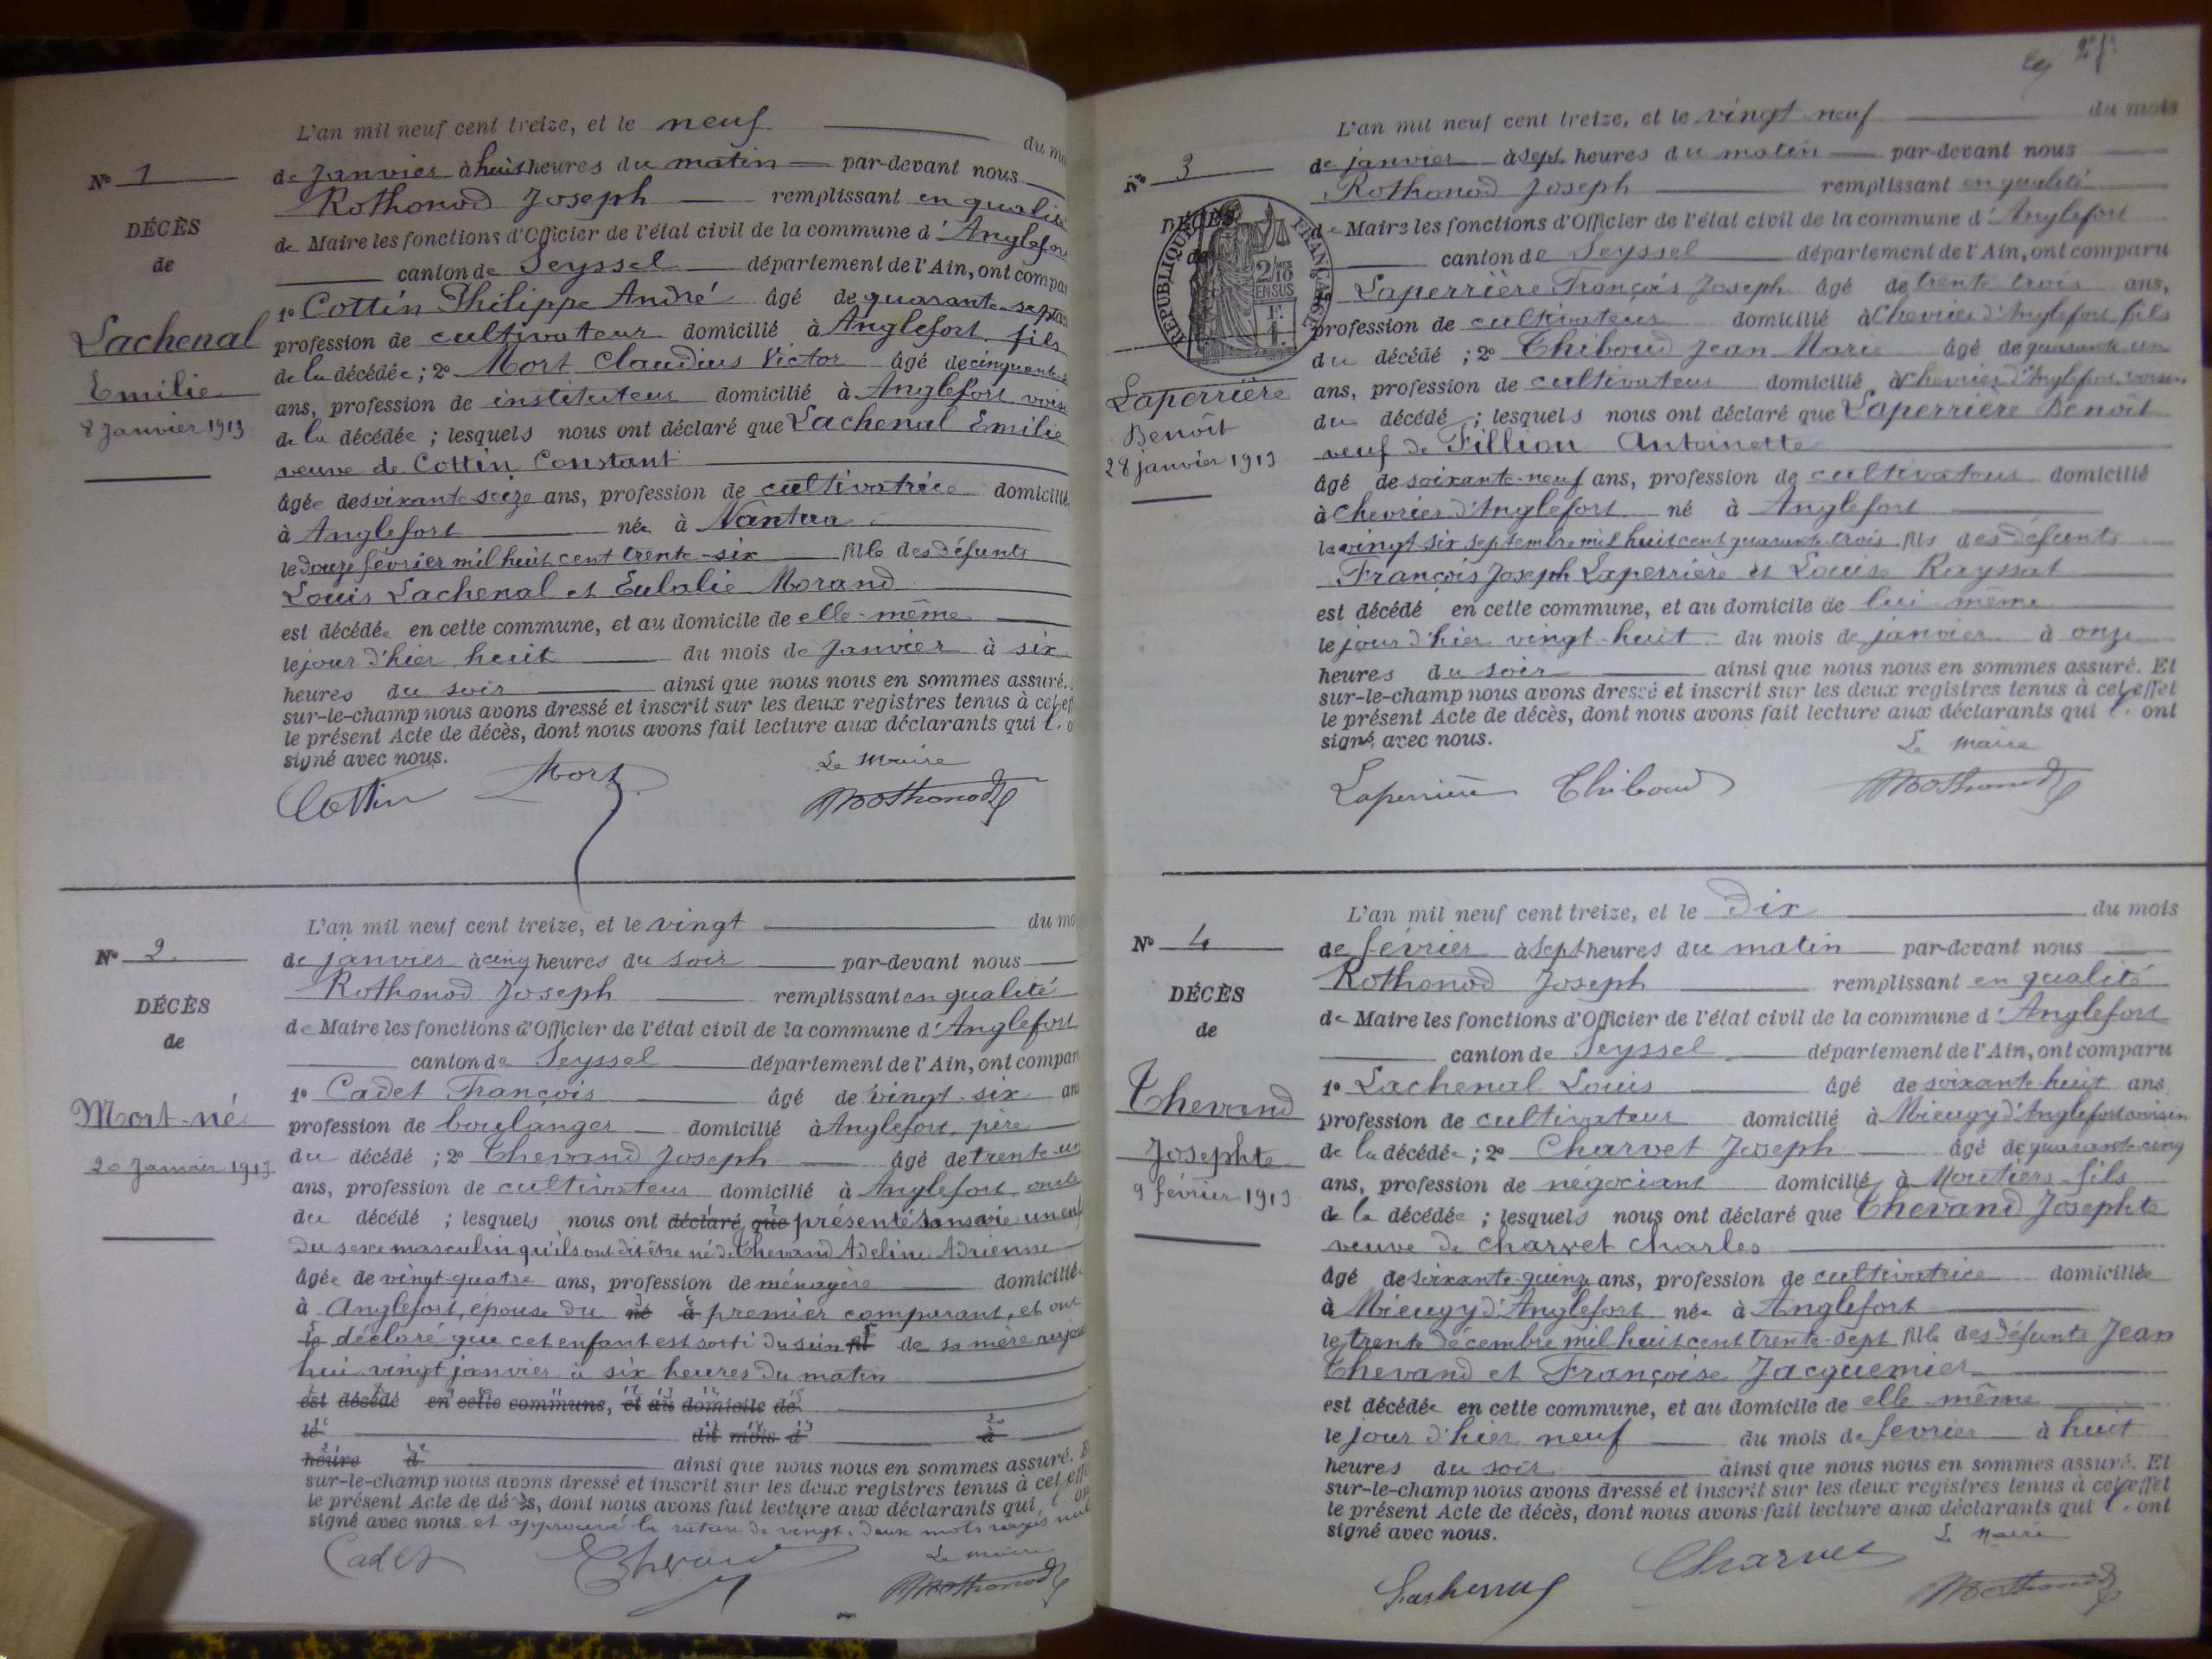 L'an mil neuf cent treize, et le neuf du mo
Nº 1
de Janvier à huit heures du matin par-devant nous
Rothonod Joseph remplissant en qualité
DÉCÈS
de Maire les fonctions d'Officier de l'état civil de la commune d'Anglefort
de
canton de Seyssel département de l'Ain, ont compar
1º Cottin Philippe André âgé de quarante-sept an
Lachenal
profession de cultivateur domicilié à Anglefort, fils
Emilie
de la décédée ; 2º Mort Claudius Victor âgé de cinquante
8 Janvier 1913
ans, profession de instituteur domicilié à Anglefort voisi
de la décédée ; lesquels nous ont déclaré que Lachenal Emilie
veuve de Cottin Constant
âgée de soixante-seize ans, profession de cultivatrice domicilié
à Anglefort née à Nantua
le douze février mil huit cent trente-six fille des défunts
Louis Lachenal et Eulalie Morand
est décédée en cette commune, et au domicile de elle-même
le jour d'hier huit du mois de Janvier à six
heures du soir ainsi que nous nous en sommes assuré.
sur-le-champ nous avons dressé et inscrit sur les deux registres tenus à cet eff
le présent Acte de décès, dont nous avons fait lecture aux déclarants qui l' o
signé avec nous.
Le Maire
Cottin Mort Rothonod
L'an mil neuf cent treize, et le vingt du mo
Nº 2
de janvier à cinq heures du soir par-devant nous
Rothonod Joseph remplissant en qualité
DÉCÈS
de Maire les fonctions d'Officier de l'état civil de la commune d'Anglefort
de
canton de Seyssel département de l'Ain, ont compar
1º Cadet François âgé de vingt-six an
Mort-né
profession de boulanger domicilié à Anglefort, père
20 Janvier 1913
du décédé ; 2º Thevand Joseph âgé de trente-un
ans, profession de cultivateur domicilié à Anglefort, oncle
du décédé ; lesquels nous ont déclaré que présenté sans vie un enf
du sexe masculin qu'ils ont dit être né de Thevand Adeline Adrienne
âgée de vingt-quatre ans, profession de ménagère domiciliée
à Anglefort, épouse du né à premier comparant, et ont
le déclaré que cet enfant est sorti du sein fil de sa mère aujou
hui vingt janvier à six heures du matin
est décédé en cette commune, et au domicile de
le dit mois d à
heure d ainsi que nous nous en sommes assuré. E
sur-le-champ nous avons dressé et inscrit sur les deux registres tenus à cet effe
le présent Acte de décès, dont nous avons fait lecture aux déclarants qui l' on
signé avec nous et approuvé la rature de vingt-deux mots rayés nuls
Le Maire
Cadet Thevand Rothonod
2 f
L'an mil neuf cent treize, et le vingt-neuf du mois
Nº 3
de janvier à sept heures du matin par-devant nous
Rothonod Joseph remplissant en qualité
DÉCÈS
de Maire les fonctions d'Officier de l'état civil de la commune d'Anglefort
de
RÉPUBLIQUE FRANÇAISE
2/10 EN SUS
canton de Seyssel département de l'Ain, ont comparu
1º Laperrière François Joseph âgé de trente-trois ans,
profession de cultivateur domicilié à Chevrier d'Anglefort fils
du décédé ; 2º Thiboud Jean Marie âgé de quarante un
Laperrière
ans, profession de cultivateur domicilié à Chevrier d'Anglefort voisin
Benoît
du décédé ; lesquels nous ont déclaré que Laperrière Benoît
28 janvier 1913
veuf de Fillion Antoinette
âgé de soixante-neuf ans, profession de cultivateur domicilié
à Chevrier d'Anglefort né à Anglefort
le vingt-six septembre mil huit cent quarante-trois fils des défunts
François Joseph Laperrière et Louise Rayssat
est décédé en cette commune, et au domicile de lui-même
le jour d'hier vingt-huit du mois de janvier à onze
heures du soir ainsi que nous nous en sommes assuré. Et
sur-le-champ nous avons dressé et inscrit sur les deux registres tenus à cet effet
le présent Acte de décès, dont nous avons fait lecture aux déclarants qui l' ont
signé avec nous.
Le Maire
Laperrière Thiboud Rothonod
L'an mil neuf cent treize, et le dix du mois
Nº 4
de février à sept heures du matin par-devant nous
Rothonod Joseph remplissant en qualité
DÉCÈS
de Maire les fonctions d'Officier de l'état civil de la commune d'Anglefort
de
canton de Seyssel département de l'Ain, ont comparu
1º Lachenal Louis âgé de soixante-huit ans
Thevand
profession de cultivateur domicilié à Mieugy d'Anglefort voisin
Josephte
de la décédée ; 2º Charvet Joseph âgé de quarante-cinq
9 février 1913
ans, profession de négociant domicilié à Moutiers fils
de la décédée ; lesquels nous ont déclaré que Thevand Josephte
veuve de Charvet Charles
âgé de soixante-quinze ans, profession de cultivatrice domiciliée
à Mieugy d'Anglefort née à Anglefort
le trente décembre mil huit cent trente-sept fille des défunts Jean
Thevand et Françoise Jacquemier
est décédée en cette commune, et au domicile de elle-même
le jour d'hier neuf du mois de février à huit
heures du soir ainsi que nous nous en sommes assuré. Et
sur-le-champ nous avons dressé et inscrit sur les deux registres tenus à cet effet
le présent Acte de décès, dont nous avons fait lecture aux déclarants qui l' ont
signé avec nous.
Le Maire
Lachenal Charvet Rothonod